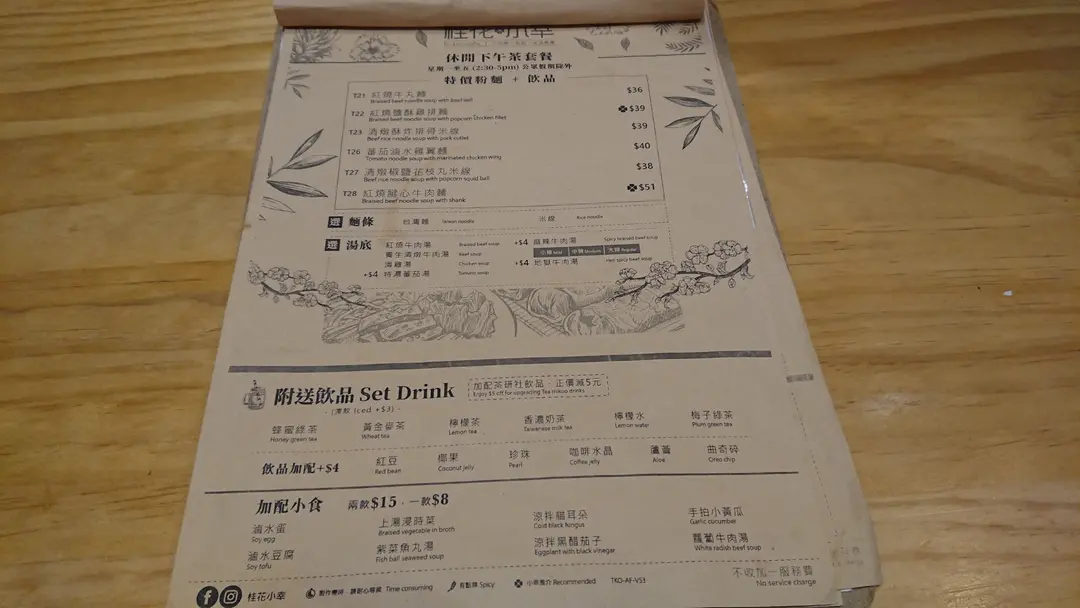 桂花小幸
休閒下午茶套餐
星期一至五 (2:30-5pm) 公眾假期除外
特價粉麵 + 飲品
T21 紅燒牛丸麵 $36
Braised beef noodle soup with beef ball
T22 紅燒鹽酥雞排麵 $39
Braised beef noodle soup with popcorn chicken fillet
T23 清燉酥炸排骨米線 $39
Beef rice noodle soup with pork cutlet
T26 蕃茄滷水雞翼麵 $40
Tomato noodle soup with marinated chicken wing
T27 清燉椒鹽花枝丸米線 $38
Beef rice noodle soup with popcorn squid ball
T28 紅燒腱心牛肉麵 $51
Braised beef noodle soup with shank
選 麵條 台灣麵 Taiwan noodle 米線 Rice noodle
選 湯底 紅燒牛肉湯 Braised beef soup +$4 麻辣牛肉湯 Spicy braised beef soup
養生清燉牛肉湯 Beef soup 小辣 Mild 中辣 Medium 大辣 Regular
清雞湯 Chicken soup +$4 地獄牛肉湯 Hell spicy beef soup
+$4 特濃蕃茄湯 Tomato soup
附送飲品 Set Drink
加配茶研社飲品，正價減5元
Enjoy $5 off for upgrading Tea mikoo drinks
(凍飲 Iced +$3)
蜂蜜綠茶 黃金麥茶 檸檬茶 香濃奶茶 檸檬水 梅子綠茶
Honey green tea Wheat tea Lemon tea Taiwanese milk tea Lemon water Plum green tea
飲品加配+$4 紅豆 椰果 珍珠 咖啡水晶 蘆薈 曲奇碎
Red bean Coconut jelly Pearl Coffee jelly Aloe Oreo chip
加配小食 兩款$15 · 一款$8
滷水蛋 上湯浸時菜 涼拌貓耳朵 手拍小黃瓜
Soy egg Braised vegetable in broth Cold black fungus Garlic cucumber
滷水豆腐 紫菜魚丸湯 涼拌黑醋茄子 蘿蔔牛肉湯
Soy tofu Fish ball seaweed soup Eggplant with black vinegar White radish beef soup
不收加一服務費
No service charge
桂花小幸 製作需時，請耐心等候 Time consuming 有點辣 Spicy 小幸推介 Recommended TKO-AF-V53